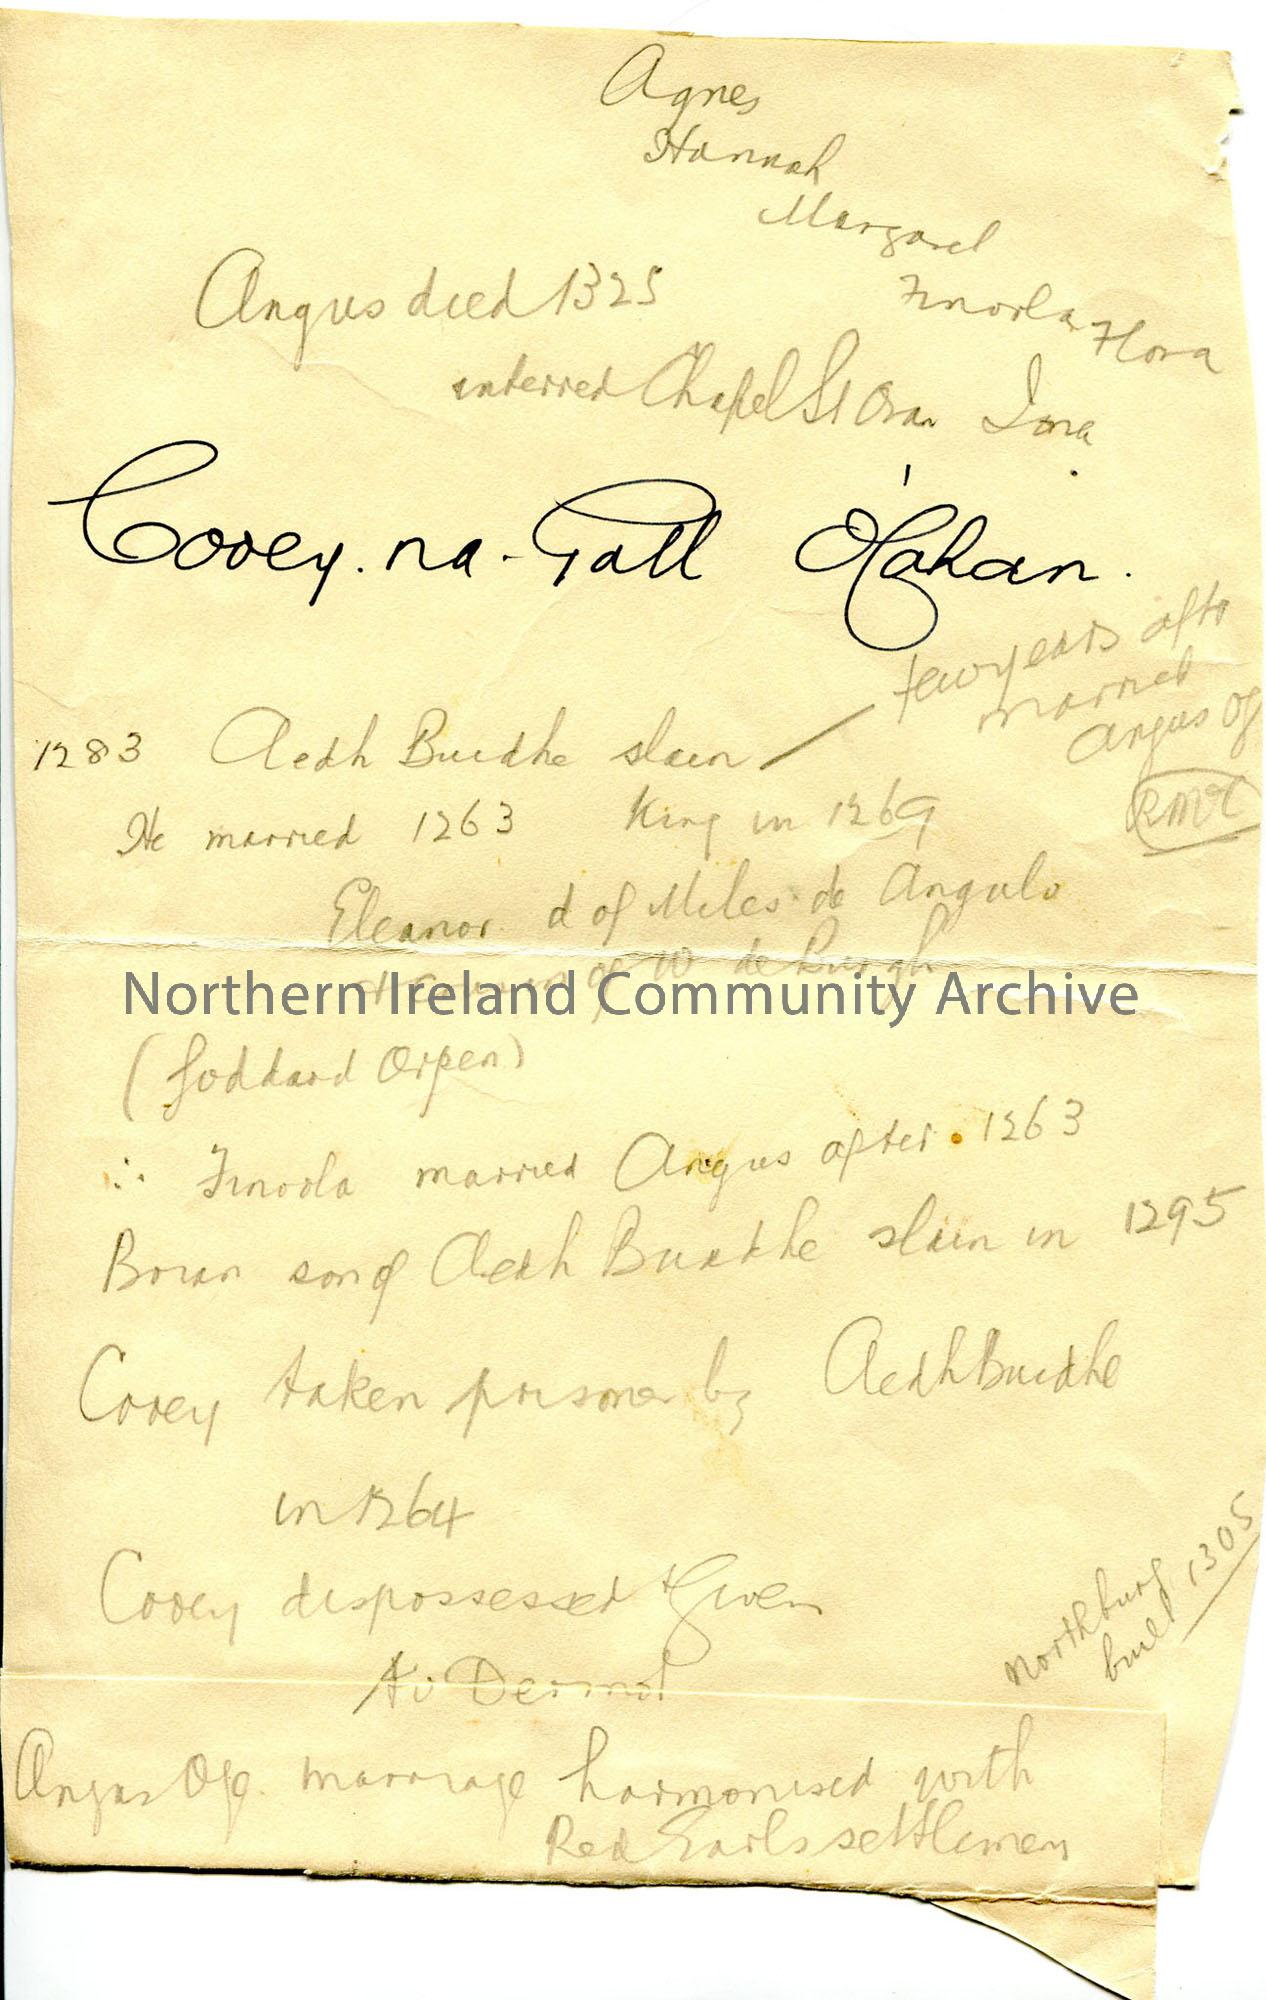 Agnes
Hannah
Margaret
Finoola
Flora
Angus died 1325
interred Chapel St Oran Iona
Cooey. na. Gall O'Cahan.
few years after
married
Angus Og
RMcC
1283 Aedh Buidhe slain
He married 1263 King in 1269
Eleanor d of Miles de Angulo
of W de Burgh
Northern Ireland Community Archive
(Goddard Orpen)
∴ Finoola married Angus after 1263
Brian son of Aedh Buidhe slain in 1295
Cooey taken prisoner by Aedh Buidhe
in 1264
Cooey dispossessed & Given
to Dermot
Northburg
built 1305
Angus Og marriage harmonised with
Red Earls settlement